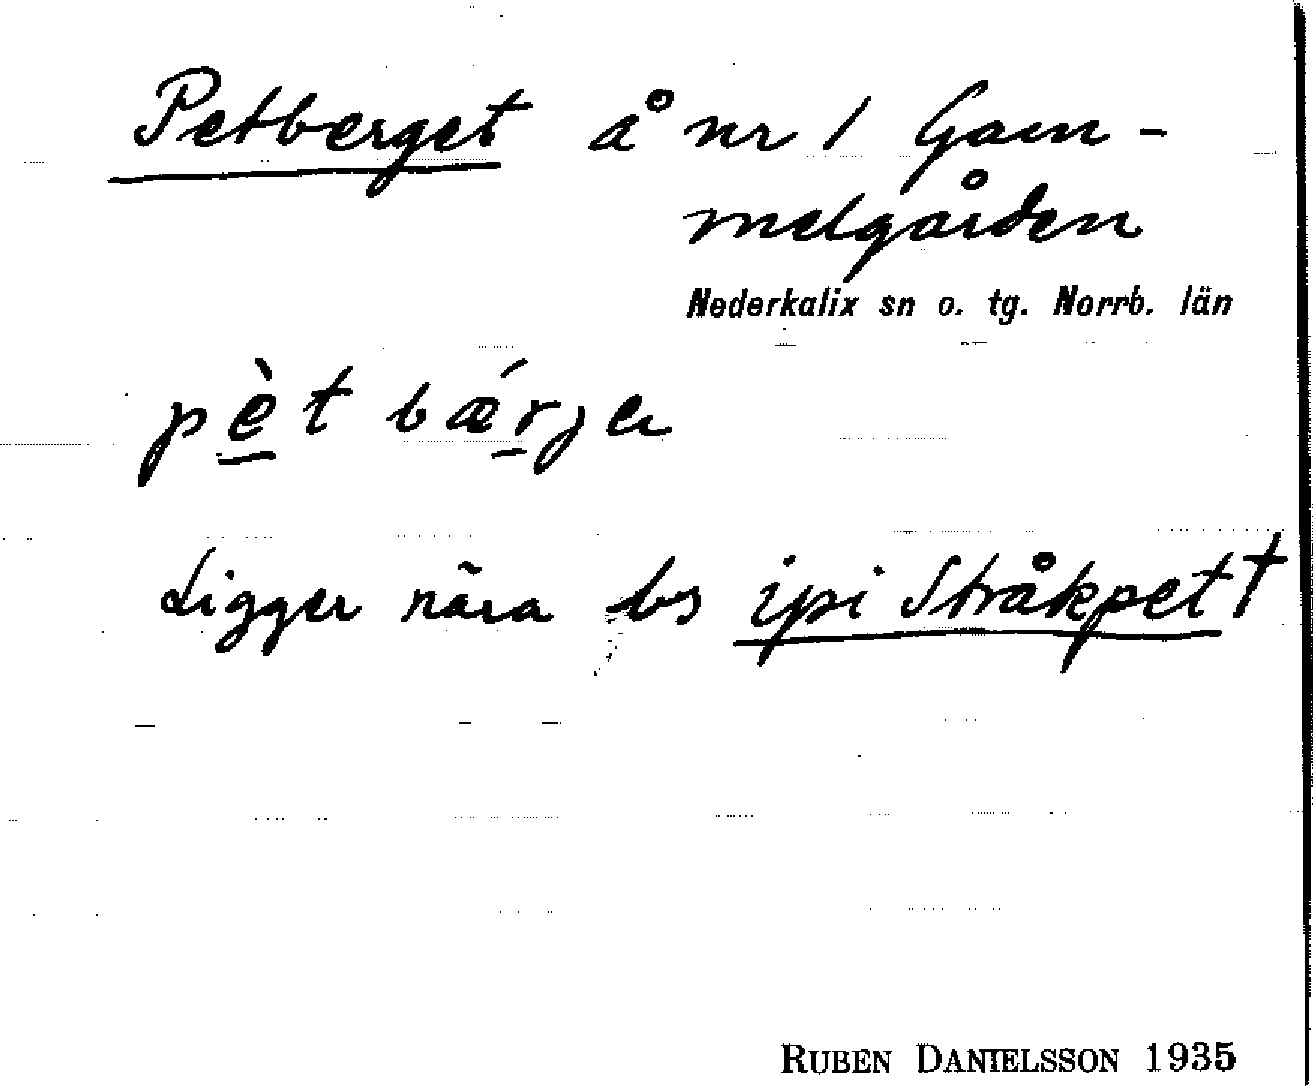 Petberget å nr 1 Gam-
melgården
Nederkalix sn o. tg. Norrb. län
pèt bǽrjer
Ligger nära bs ipi Stråkpett
RUBEN DANIELSSON 1935